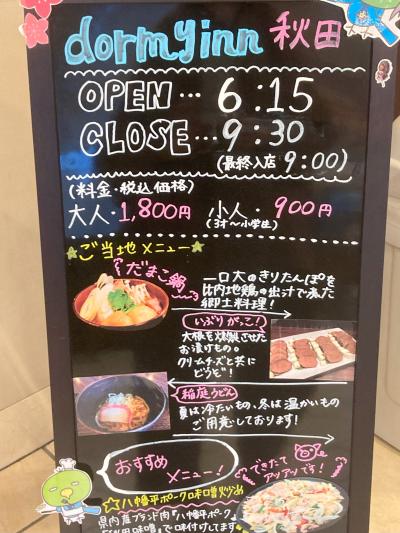 dormy inn 秋田
OPEN … 6:15
CLOSE … 9:30
(最終入店 9:00)
(料金・税込価格)
大人・1,800円 小人・900円
(3才〜小学生)
★ご当地メニュー★
だまこ鍋
一口大のきりたんぽを
比内地鶏の出汁で煮た
郷土料理!
いぶりがっこ!
大根を燻製させた
お漬けもの。
クリームチーズと共に
どうぞ!
稲庭うどん
夏は冷たいもの、冬は温かいもの
ご用意しております!
おすすめ
メニュー!
できたて
アツアツです!
☆八幡平ポーク味噌炒め
県内産ブランド肉『八幡平ポーク』
で味付けしてます